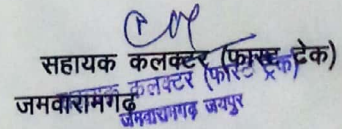 सहायक कलक्टर (फास्ट ट्रेक)
कलक्टर (फास्ट ट्रेक)
जमवारामगढ़
जमवारामगढ़ जयपुर